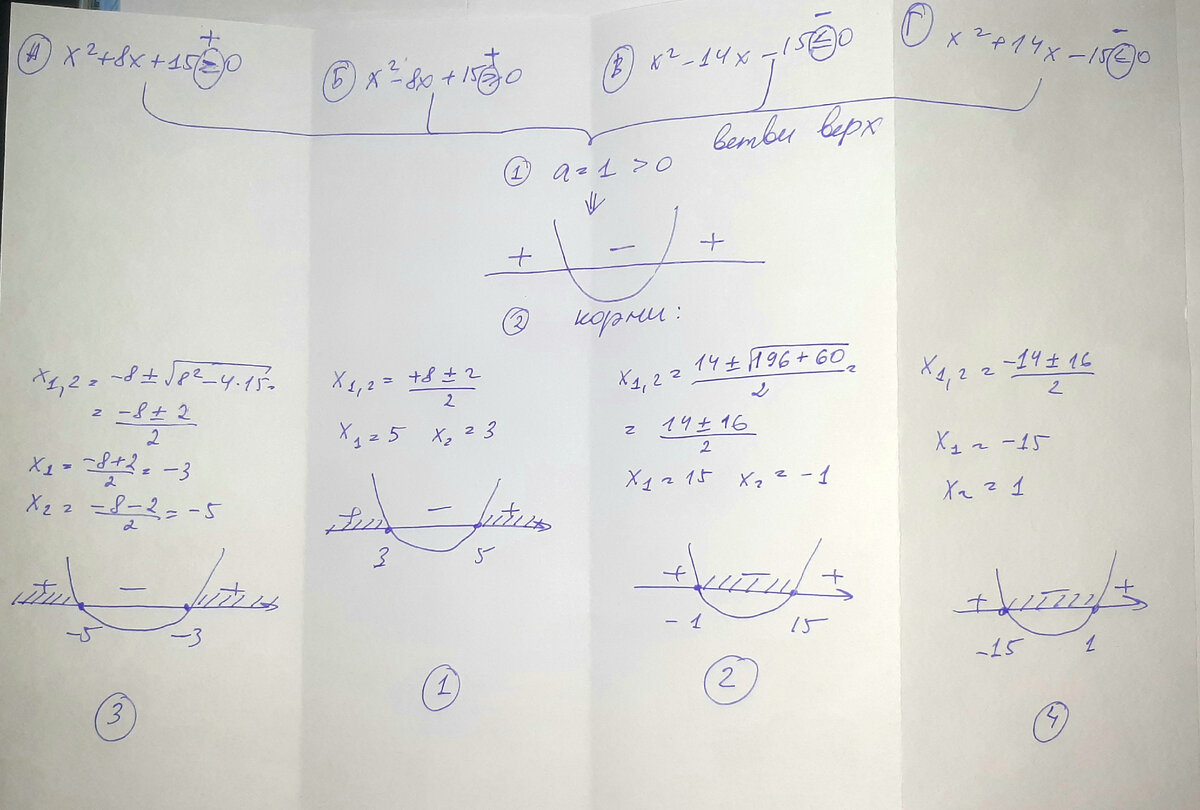 А x²+8x+15≥0
+
Б x²-8x+15≥0
+
В x²-14x-15≤0
−
Г x²+14x-15≤0
−
ветви верх
① a=1>0
⇓
+ − +
② корни:
x₁,₂ = -8±√8²-4·15 =
= (-8±2)/2
x₁ = (-8+2)/2 = -3
x₂ = (-8-2)/2 = -5
+ − +
-5 -3
③
x₁,₂ = (+8±2)/2
x₁=5 x₂=3
+ − +
3 5
①
x₁,₂ = (14±√196+60)/2 =
= (14±16)/2
x₁=15 x₂=-1
+ − +
-1 15
②
x₁,₂ = (-14±16)/2
x₁=-15
x₂=1
+ − +
-15 1
④